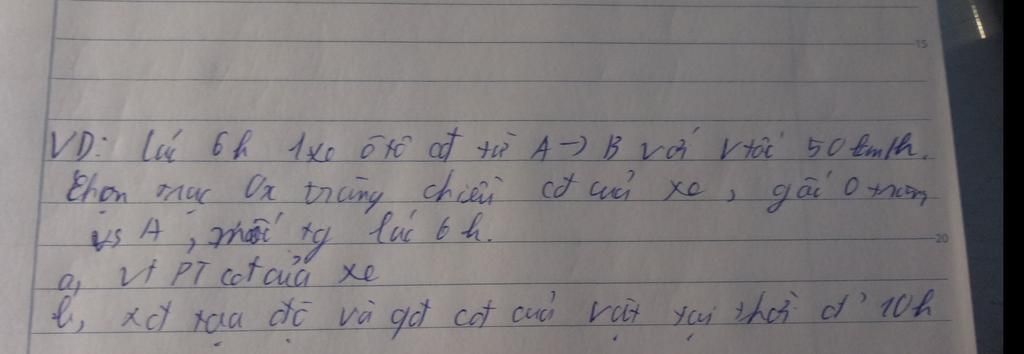 15
VD: lúc 6h 1 xe ô tô cđ từ A → B với vtốc 50 km/h.
Chọn trục Ox trùng chiều cđ của xe, gốc O trùng
vs A, mốc tg lúc 6h.
20
a, Vt PT cđ của xe
b, xđ tọa độ và qđ cđ của vật tại thời đ' 10h